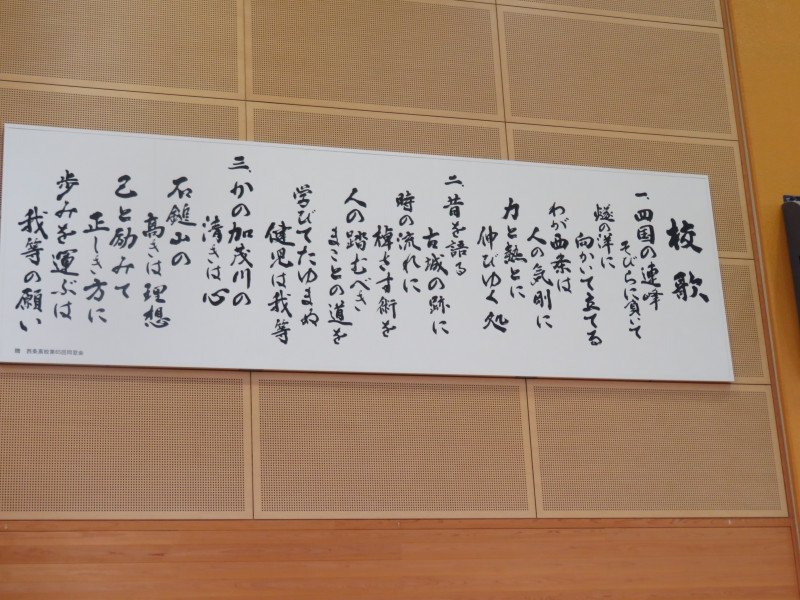 校歌
一、四国の連峰
そびらに負いて
燧の洋に
向かいて立てる
わが西条は
人の気剛に
力と熱とに
伸びゆく処
二、昔を語る
古城の跡に
時の流れに
棹さす術を
人の踏むべき
まことの道を
学びてたゆまぬ
健児は我等
三、かの加茂川の
清きは心
石鎚山の
高きは理想
己と励みて
正しき方に
歩みを運ぶは
我等の願い
贈 西条高校第
回同窓会